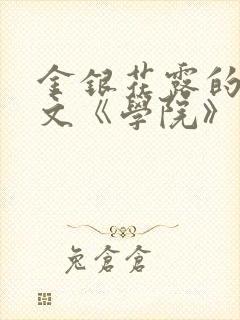 金银花露的
文《學院》
兔倉倉